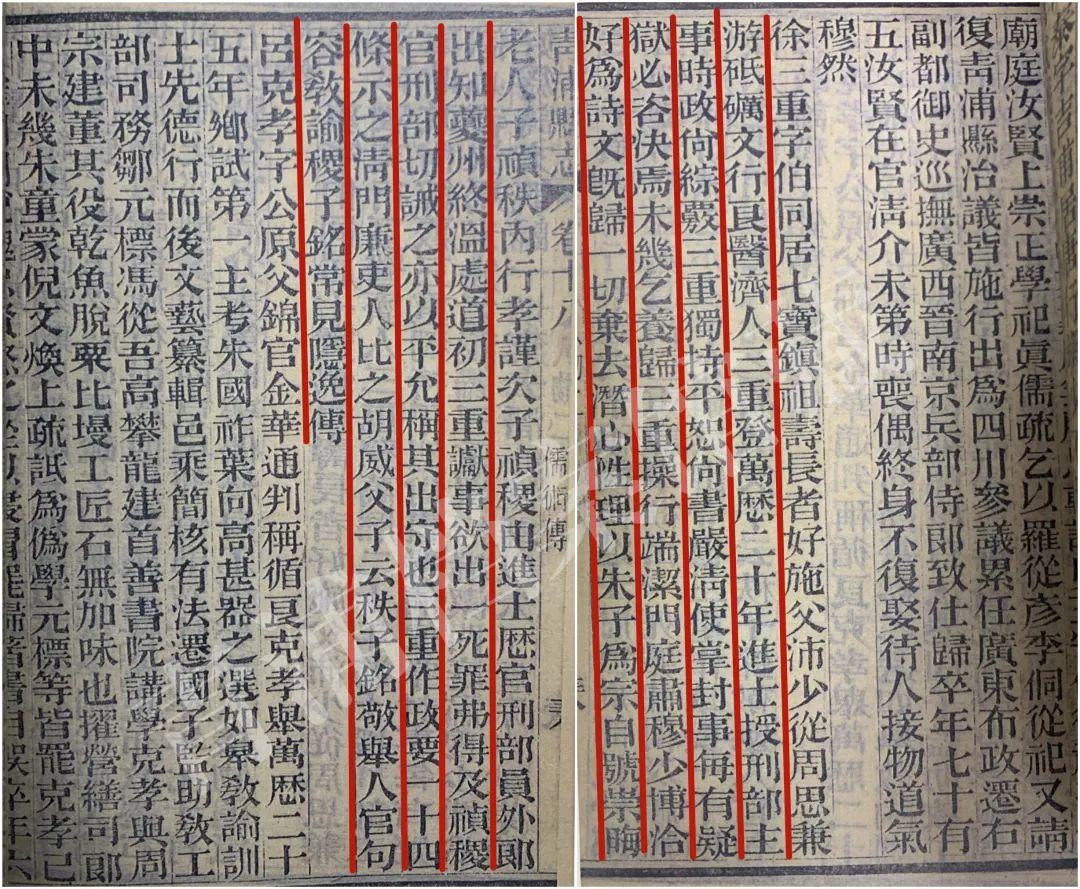 廟庭汝賢上崇正學祀眞儒疏乞以羅從彥李侗從祀又請
復靑浦縣治議皆施行出爲四川參議累任廣東布政遷右
副都御史巡撫廣西晉南京兵部侍郎致仕歸卒年七十有
五汝賢在官淸介未第時喪偶終身不復娶待人接物道氣
穆然
徐三重字伯同居七寶鎭祖壽長者好施父沛少從周思兼
游砥礪文行良醫濟人三重登萬歷二十年進士授刑部主
事時政尙綜覈三重獨持平恕尙書嚴淸使掌封事每有疑
獄必咨決焉未幾乞養歸三重操行端潔門庭肅穆少博洽
好爲詩文旣歸一切棄去潛心性理以朱子爲宗自號崇晦
靑浦縣志 卷十八 儒術傳
老人子禎秩內行孝謹次子禎稷由進士歷官刑部員外郎
出知夔州終溫處道初三重讞事欲出一死罪弗得及禎稷
官刑部切誡之亦以平允稱其出守也三重作政要二十四
條示之淸門廉吏人比之胡威父子云秩子銘敬舉人官句
容敎諭稷子銘常見隱逸傳
呂克孝字公原父錦官金華通判稱循良克孝舉萬歷二十
五年鄉試第一主考朱國祚葉向高甚器之選如皋敎諭訓
士先德行而後文藝纂輯邑乘簡核有法遷國子監助敎工
部司務鄒元標馮從吾高攀龍建首善書院講學克孝與周
宗建董其役乾魚脫粟比墁工匠石無加味也擢營繕司郎
中未幾朱童蒙倪文煥上疏詆爲僞學元標等皆罷克孝已